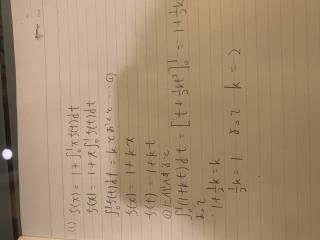 (1) f(x) = 1 + ∫₀¹ x f(t) dt
f(x) = 1 + x ∫₀¹ f(t) dt
∫₀¹ f(t) dt = k とおくと … ①
f(x) = 1 + kx
f(t) = 1 + kt
①に代入すると
∫₀¹ (1 + kt) dt = [t + ½kt²]₀¹ = 1 + ½k
よって
1 + ½k = k
½k = 1 よって k = 2